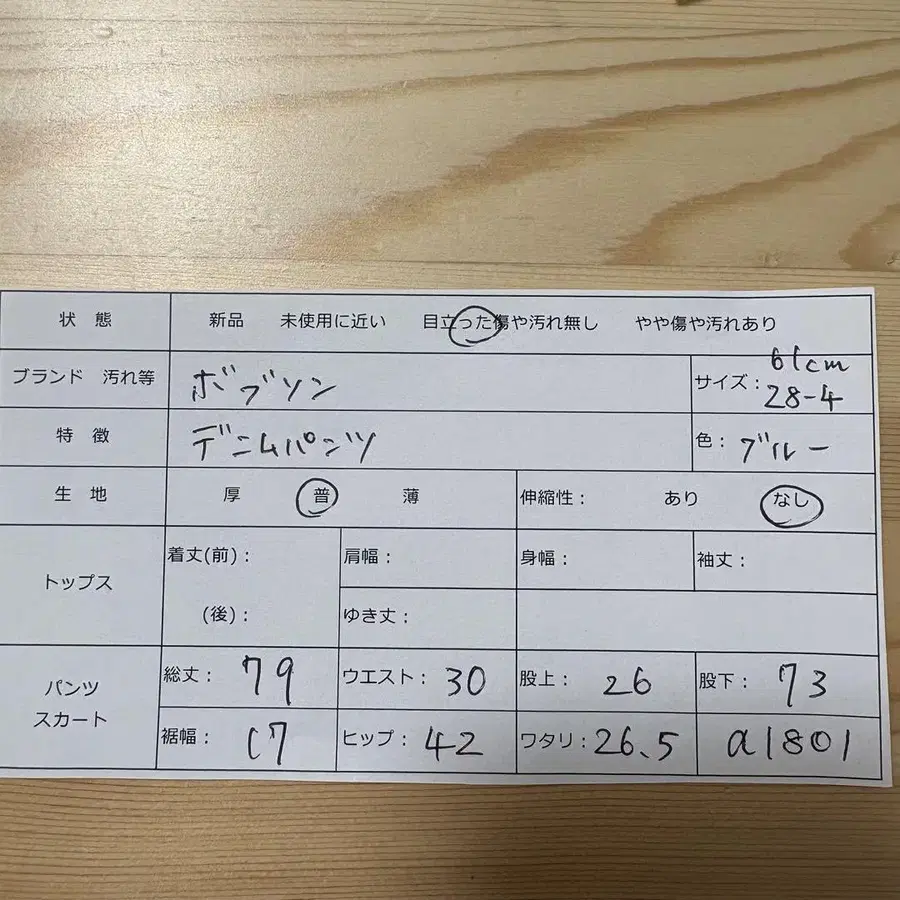 状 態 新品 未使用に近い 目立った傷や汚れ無し やや傷や汚れあり
ブランド 汚れ等 ボブソン サイズ: 61cm
28-4
特 徴 デニムパンツ 色: ブルー
生 地 厚 普 薄 伸縮性: あり なし
トップス 着丈(前): 肩幅: 身幅: 袖丈:
(後): ゆき丈:
パンツ
スカート
総丈: 79 ウエスト: 30 股上: 26 股下: 73
裾幅: 17 ヒップ: 42 ワタリ: 26.5 a1801